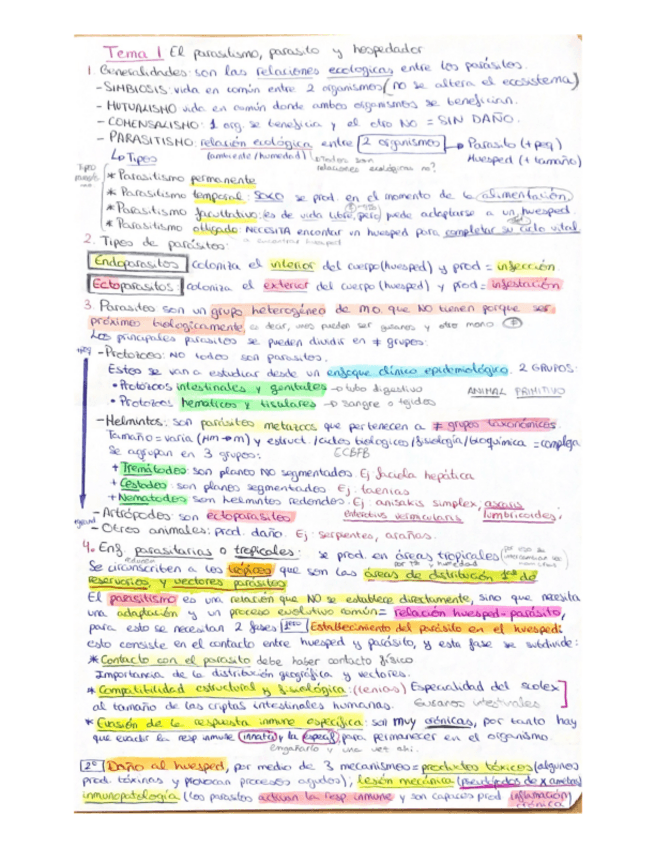 Tema 1 El parasitismo, parasito y hospedador
1. Generalidades: son las relaciones ecologicas entre los parásitos.
- SIMBIOSIS: vida en común entre 2 organismos (no se altera el ecosistema)
- MUTUALISMO vida en común donde ambos organismos se benefician.
- COMENSALISMO: 1 org. se beneficia y el otro NO = SIN DAÑO.
- PARASITISMO: relación ecológica entre 2 organismos → Parasito (+ peq)
↳ Tipos (ambiente/humedad) Todos son relaciones ecológicas no? Huesped (+ tamaño)
* Parasitismo permanente
* Parasitismo temporal: SOLO se prod. en el momento de la alimentación.
* Parasitismo facultativo: es de vida libre, pero puede adaptarse a un huesped.
* Parasitismo obligado: NECESITA encontar un huesped para completar su ciclo vital
2. Tipos de parásitos:
Endoparasitos: coloniza el interior del cuerpo (huesped) y prod = infección
Ectoparasitos: coloniza el exterior del cuerpo (huesped) y prod = infestación
3. Parasitos son un grupo heterogéneo de MO que NO tienen porque ser
próximos biologicamente, es decir, unos pueden ser gusanos y otro mono
Los principales parasitos se pueden dividir en ≠ grupos:
- Protozoos: NO todos son parasitos.
Estos se van a estudiar desde un enfoque clínico epidemiológico. 2 GRUPOS:
• Protozoos intestinales y genitales → tubo digestivo ANIMAL PRIMITIVO
• Protozoos hematicos y tisulares → sangre o tejidos
- Helmintos: son parásitos metazoos que pertenecen a ≠ grupos taxonómicos.
Tamaño = varia (µm → m) y estruct./ciclos biologicos/fisiología/bioquimica = compleja
Se agrupan en 3 grupos: ECBFB
+ Tremátodos: son planos NO segmentados. Ej fasciola hepática
+ Cestodos: son planos segmentados. Ej: taenias
+ Nematodos son helmintos redondos. Ej: anisakis simplex, ascaris
enterobius vermicularis lumbricoides
- Artrópodos: son ectoparasitos
- Otros animales: prod. daño. Ej: serpientes, arañas.
4. Enf. parasitarias o tropicales: se prod. en áreas tropicales
por Tª y humedad
Se circunscriben a los tropicos que son las áreas de distribución de
reservorios y vectores parásitos
El parasitismo es una relación que NO se establece directamente, sino que necesita
una adaptación y un proceso evolutivo común = relación huesped-parásito,
para esto se necesitan 2 fases 1ero Establecimiento del parásito en el huesped:
esto consiste en el contacto entre huesped y parásito, y esta fase se subdivide:
* Contacto con el parasito debe haber contacto físico
Importancia de la distribución geográfica y vectores.
* Compatibilidad estructural y fisiológica: (tenias) Especialidad del scolex
al tamaño de las criptas intestinales humanas. Gusanos intestinales
* Evasión de la respuesta inmune específica: son muy crónicas, por tanto hay
que evadir la resp inmune innata y la especif para permanecer en el organismo.
engañarlo y una vez ahi.
2º Daño al huesped, por medio de 3 mecanismos = productos tóxicos (algunos
prod. toxinas y provocan procesos agudos), lesión mecánica (pseudópodos de
inmunopatología (los parasitos activan la resp inmune y son capaces prod inflamación crónica)